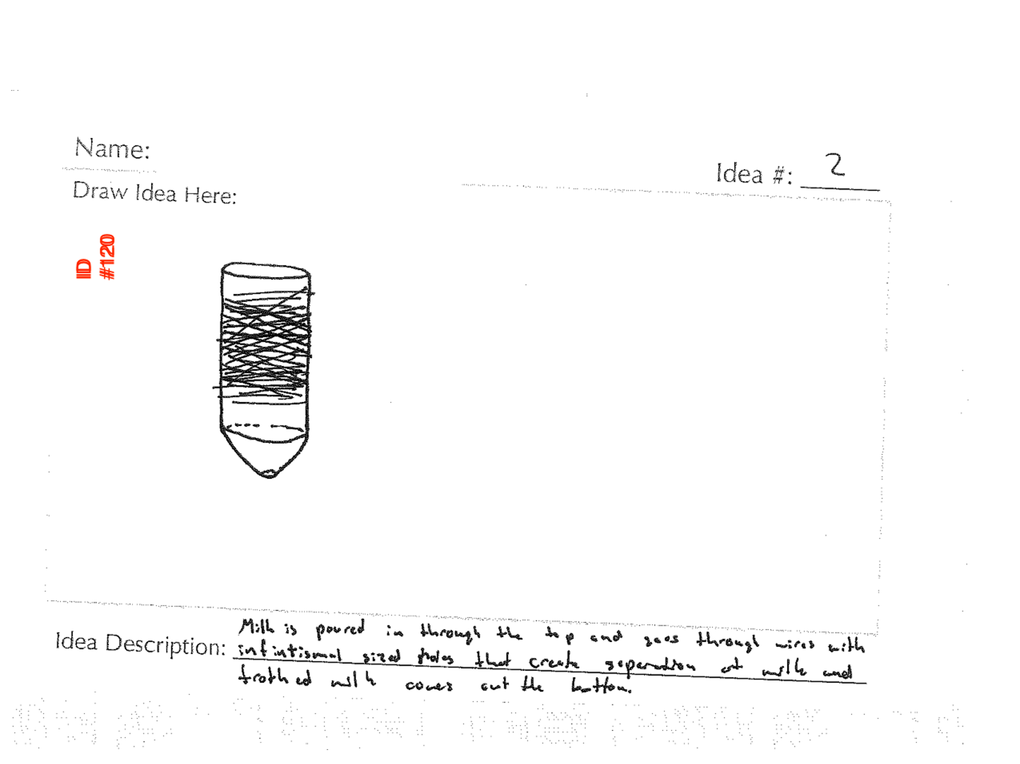 Name:
Idea #: 2
Draw Idea Here:
IID
#120
Idea Description: Milk is poured in through the top and goes through wires with
infintismal sized holes that create separation of milk and
frothed milk comes out the bottom.